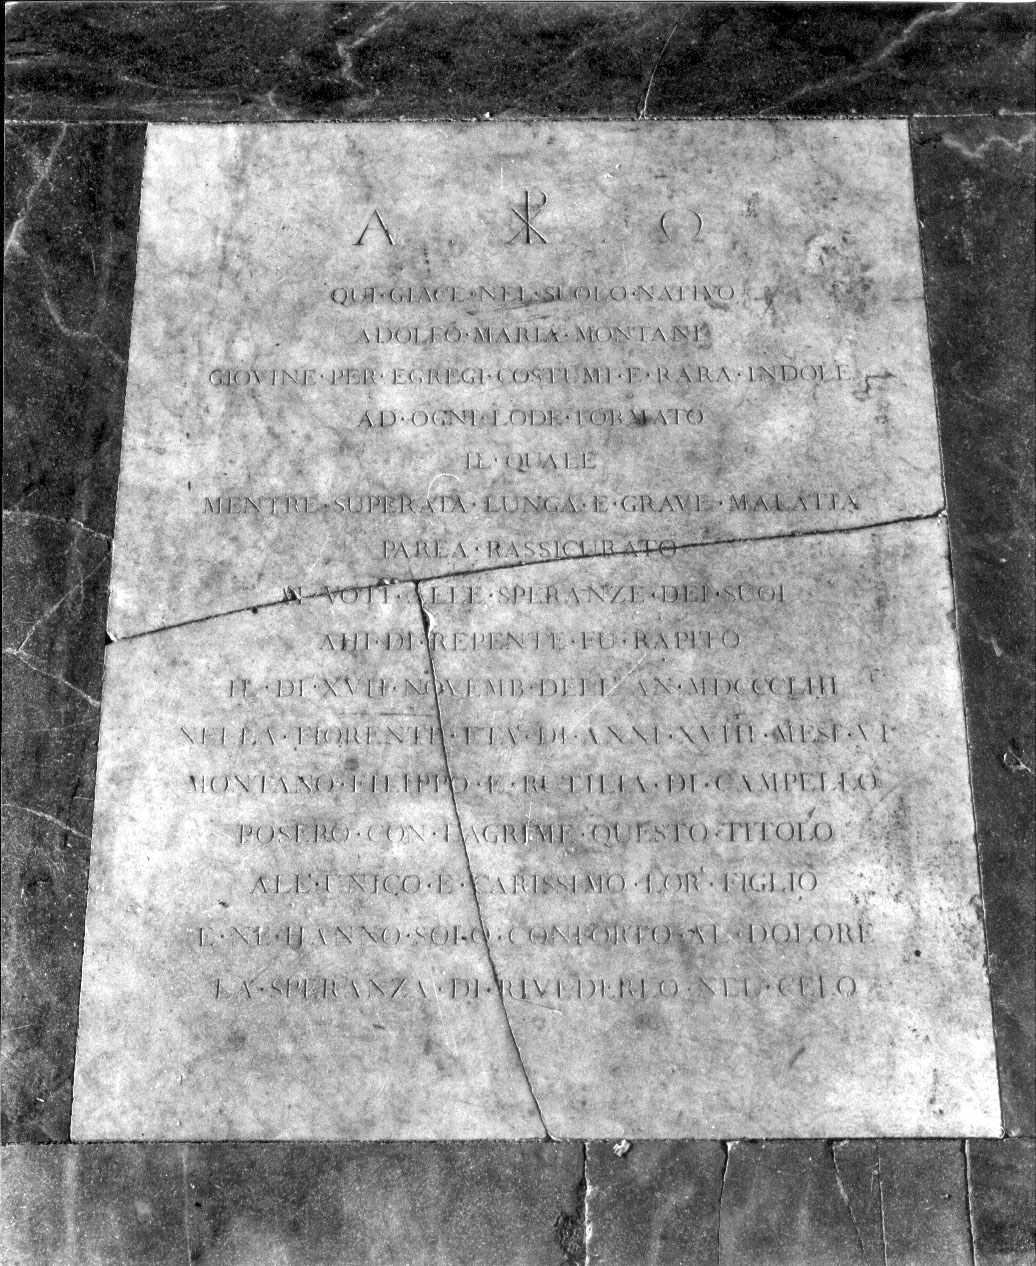 Α ☧ Ω
QUI·GIACE·NEL·SUOLO·NATIVO
ADOLFO·MARIA·MONTANI
GIOVINE·PER·EGREGI·COSTUMI·E·RARA·INDOLE
AD·OGNI·LODE·FORMATO
IL·QUALE
MENTRE·SUPERATA·LUNGA·E·GRAVE·MALATIA
PAREA·RASSICURATO
AI·VOTI·ALLE·SPERANZE·DEI·SUOI
AHI·DI·REPENTE·FU·RAPITO
IL·DI·XVII·NOVEMB·DELL'AN·MDCCCLIII
NELLA·FIORENTE·ETÀ·DI·ANNI·XVIII·MESI·VI
MONTANO·FILIPPO·E·RUTILIA·DI·CAMPELLO
POSERO·CON·LAGRIME·QUESTO·TITOLO
ALL'UNICO·E·CARISSIMO·LOR'·FIGLIO
E·NE·HANNO·SOLO·CONFORTO·AL·DOLORE
LA·SPERANZA·DI·RIVEDERLO·NEL·CELO